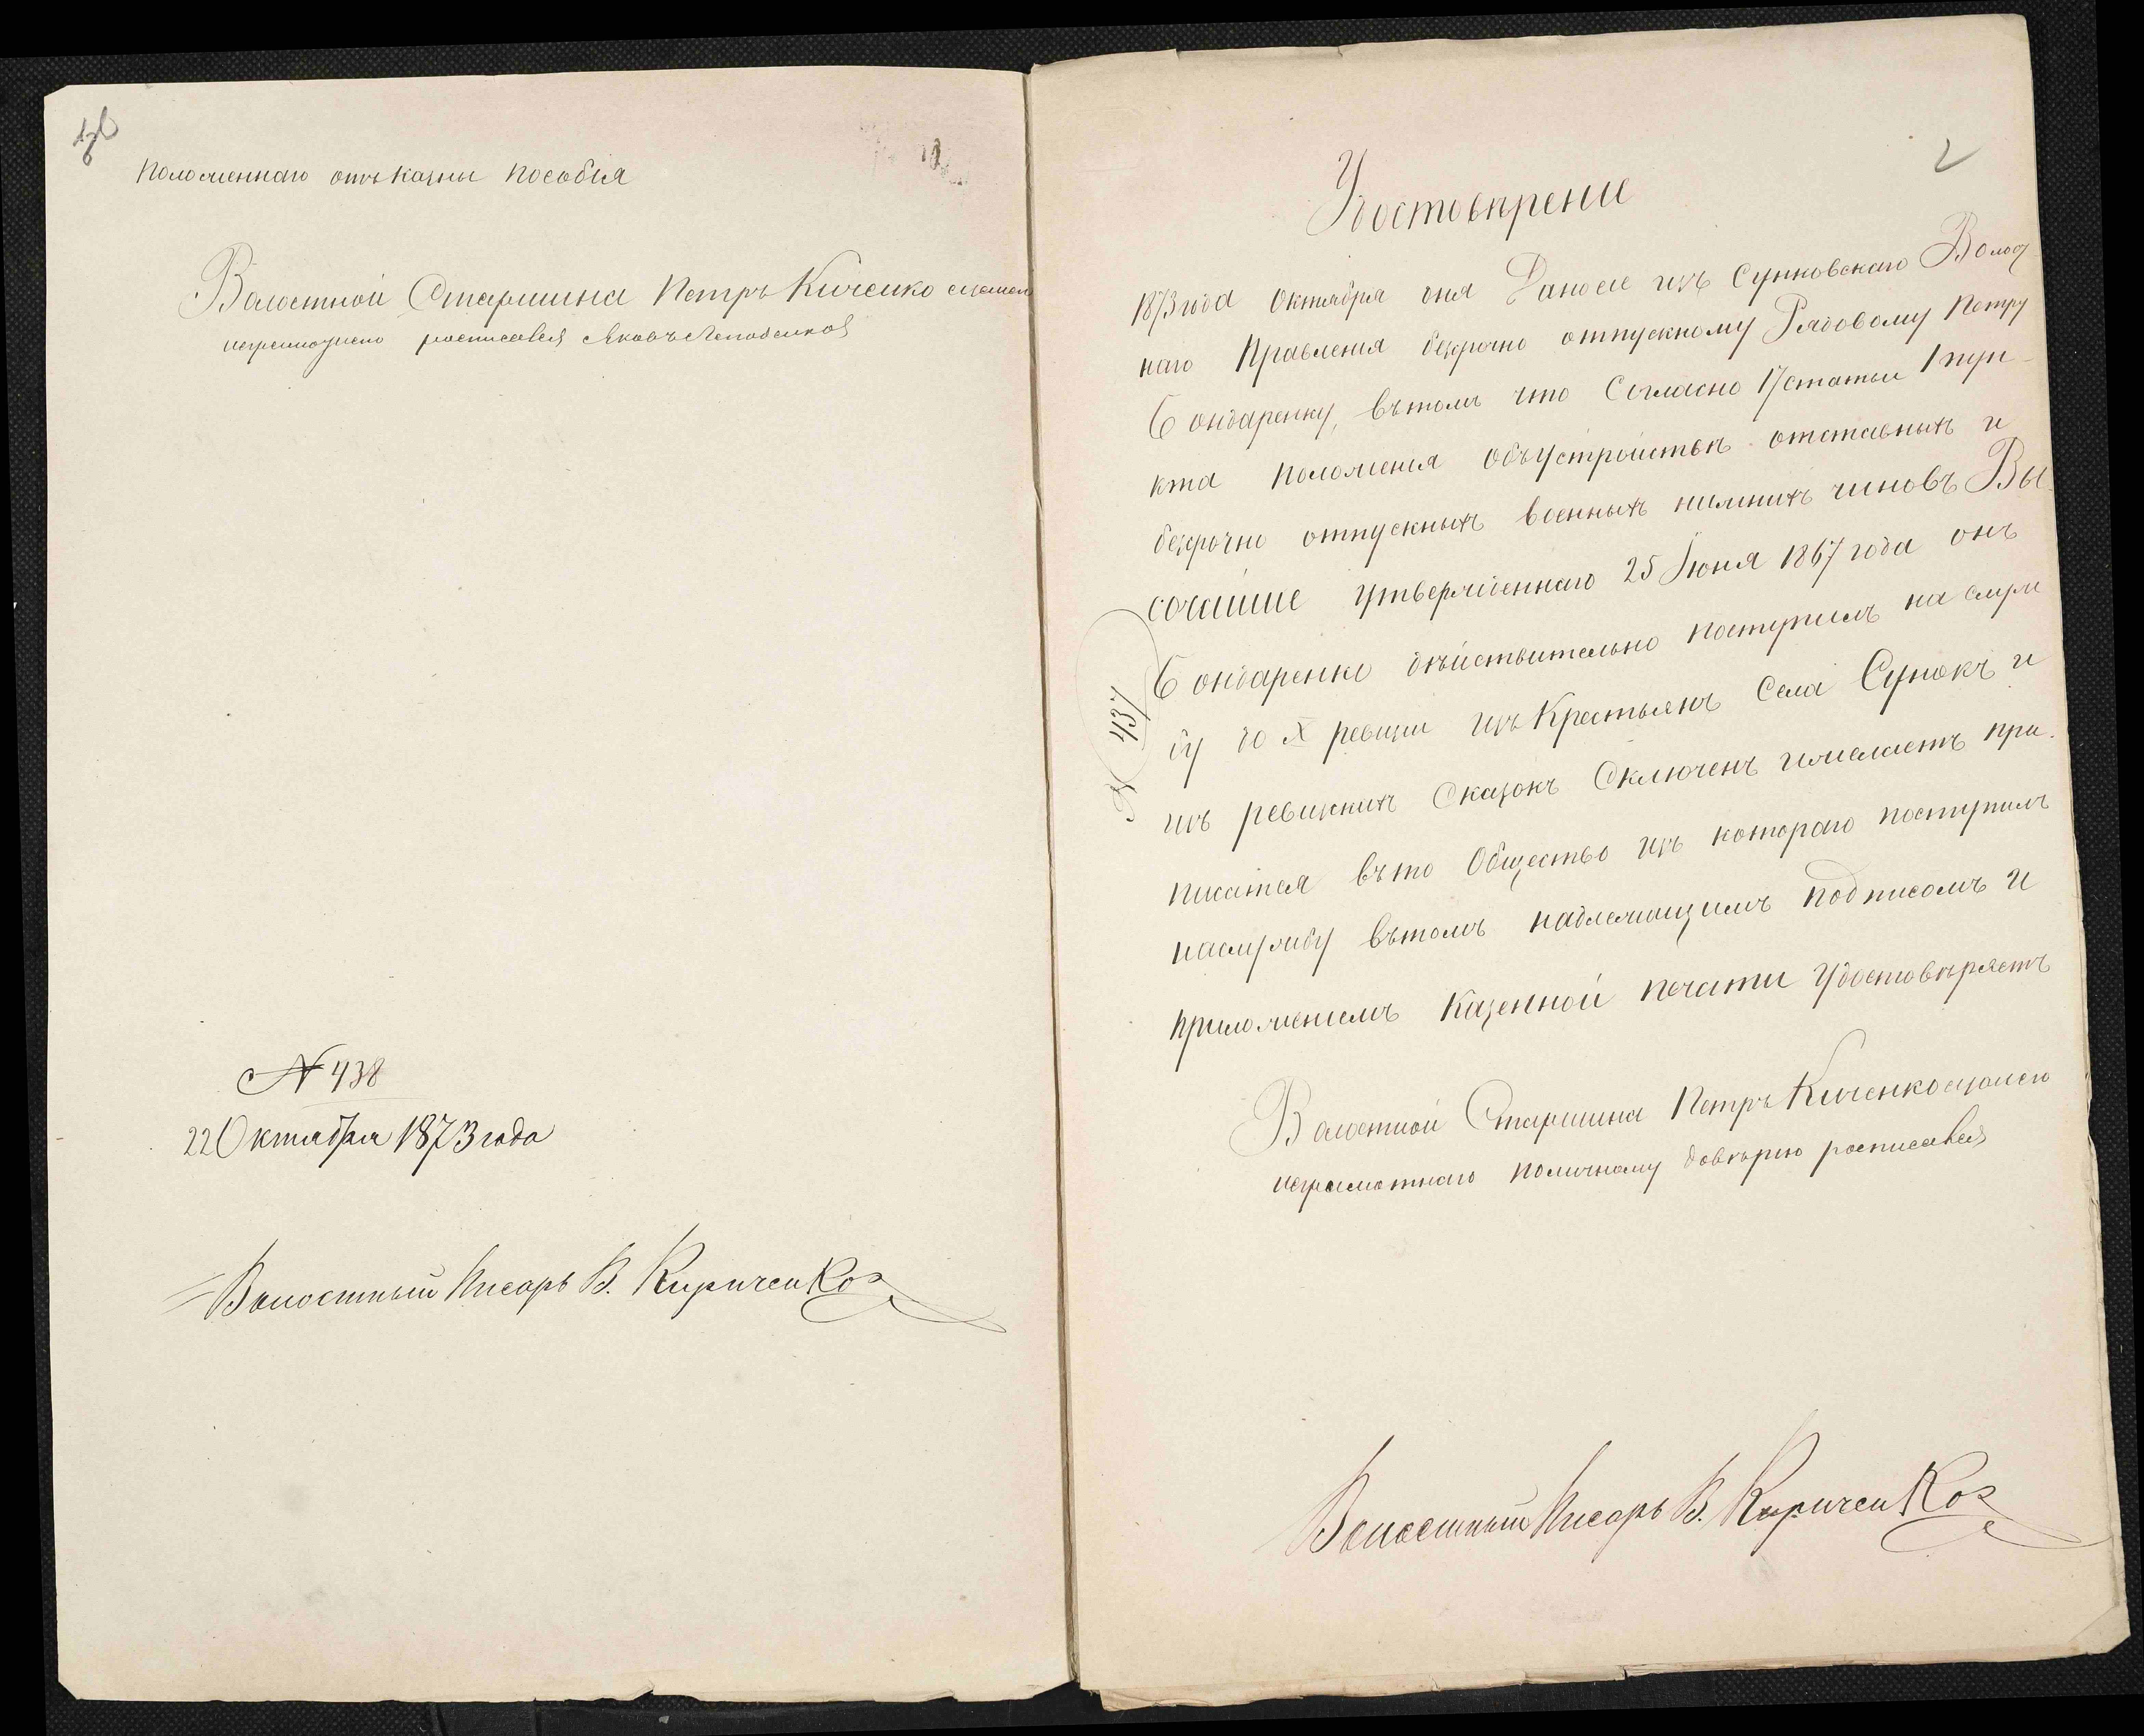 положеннаго отъ казны пособія
Волостной Старшина Петръ Киченко а за него
неграмотнаго росписався Яковъ
N 438
22 Октября 1873 года
Волостный Писарь В. Кириченко
2
Удостоверение
1873 года Октября дня Дано сіе изъ Сунковскаго Волост
наго Правления безсрочно отпускному Рядовому Петру
Бондаренку, въ томъ что Согласно 17 статьи 1 пун-
кта положения объ устройствѣ отставныхъ и
безсрочно отпускныхъ военныхъ нижнихъ чиновъ Вы-
сочайше утвержденнаго 25 Іюня 1867 года онъ
Бондаренко дѣйствительно поступилъ на служ
бу до X ревизіи изъ Крестьянъ Села Сунокъ и
изъ ревизкихъ Сказокъ Сключенъ и желаетъ при-
писатся въ то Общество изъ котораго поступилъ
на службу въ томъ надлежащимъ подписомъ и
приложениемъ Казенной печати Удостовѣряетъ
N 437
Волостной Старшина Петръ Киченко а за него
неграмотнаго по личному довѣрию росписався
Волостный Писарь В. Кириченко